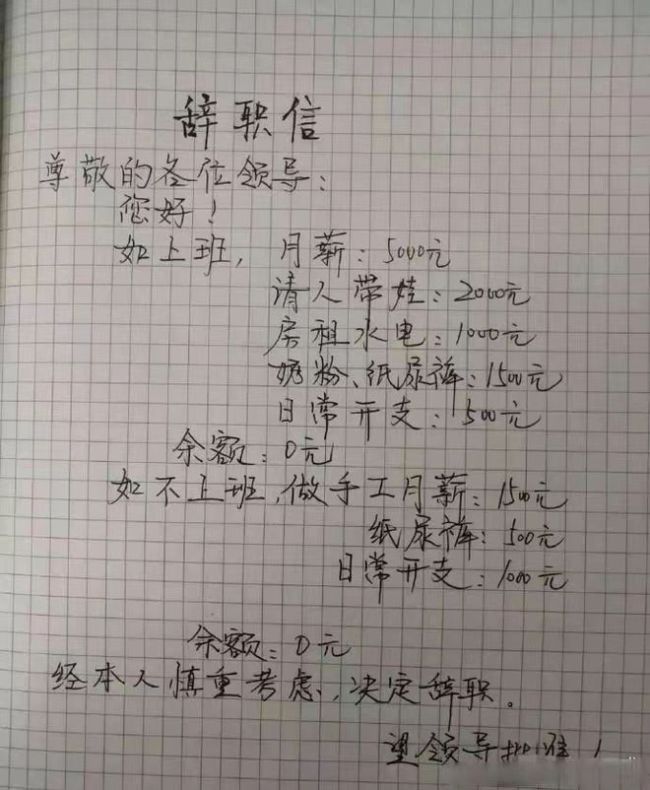 辞职信
尊敬的各位领导：
您好！
如上班，月薪：5000元
请人带娃：2000元
房租水电：1000元
奶粉、纸尿裤：1500元
日常开支：500元
余额：0元
如不上班，做手工月薪：1500元
纸尿裤：500元
日常开支：1000元
余额：0元
经本人慎重考虑，决定辞职。
望领导批准！